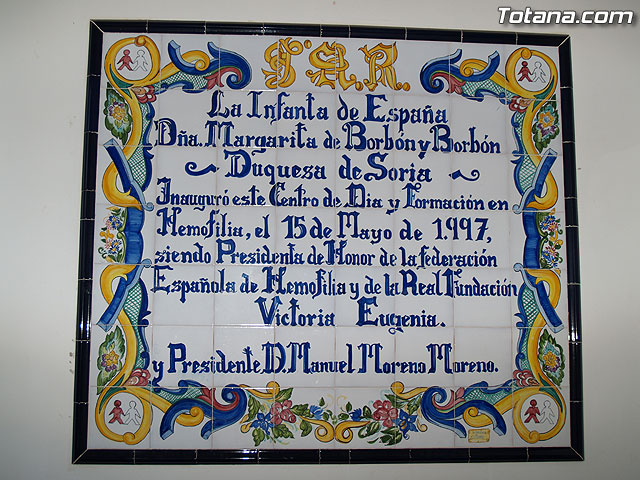 Totana.com
S.A.R.
La Infanta de España
Dña. Margarita de Borbón y Borbón
Duquesa de Soria
Inauguró este Centro de Dia y Formación en
Hemofilia, el 15 de Mayo de 1.997,
siendo Presidenta de Honor de la federación
Española de Hemofilia y de la Real Fundación
Victoria Eugenia.
y Presidente D. Manuel Moreno Moreno.
Totana.com